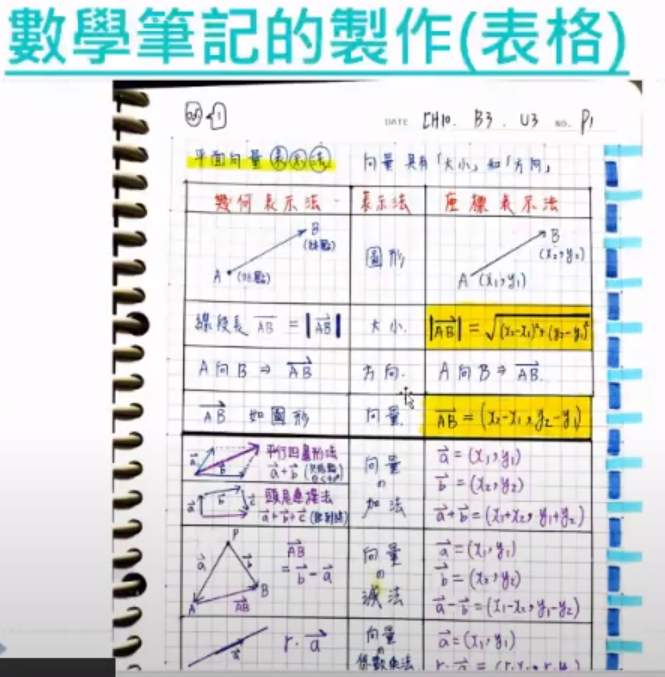 數學筆記的製作(表格)
DATE CH10. B3. U3 NO. P1
平面向量表示法 向量具有「大小」和「方向」
幾何表示法 表示法 座標表示法
B
(終點)
A (始點)
圖形
B
(x₂,y₂)
A (x₁,y₁)
線段長 AB = |AB| 大小 |AB| = √(x₂-x₁)²+(y₂-y₁)²
A向B ⇒ AB 方向 A向B ⇒ AB
AB 如圖形 向量 AB = (x₂-x₁, y₂-y₁)
a b 平行四邊形法
a+b
a b c 頭尾連接法
a+b+c
向量の加法
a = (x₁,y₁)
b = (x₂,y₂)
a+b = (x₁+x₂, y₁+y₂)
P
a b
A B
AB
AB
= b - a
向量の減法
a = (x₁,y₁)
b = (x₂,y₂)
a-b = (x₁-x₂, y₁-y₂)
a
r·a
向量の係數乘法
a = (x₁,y₁)